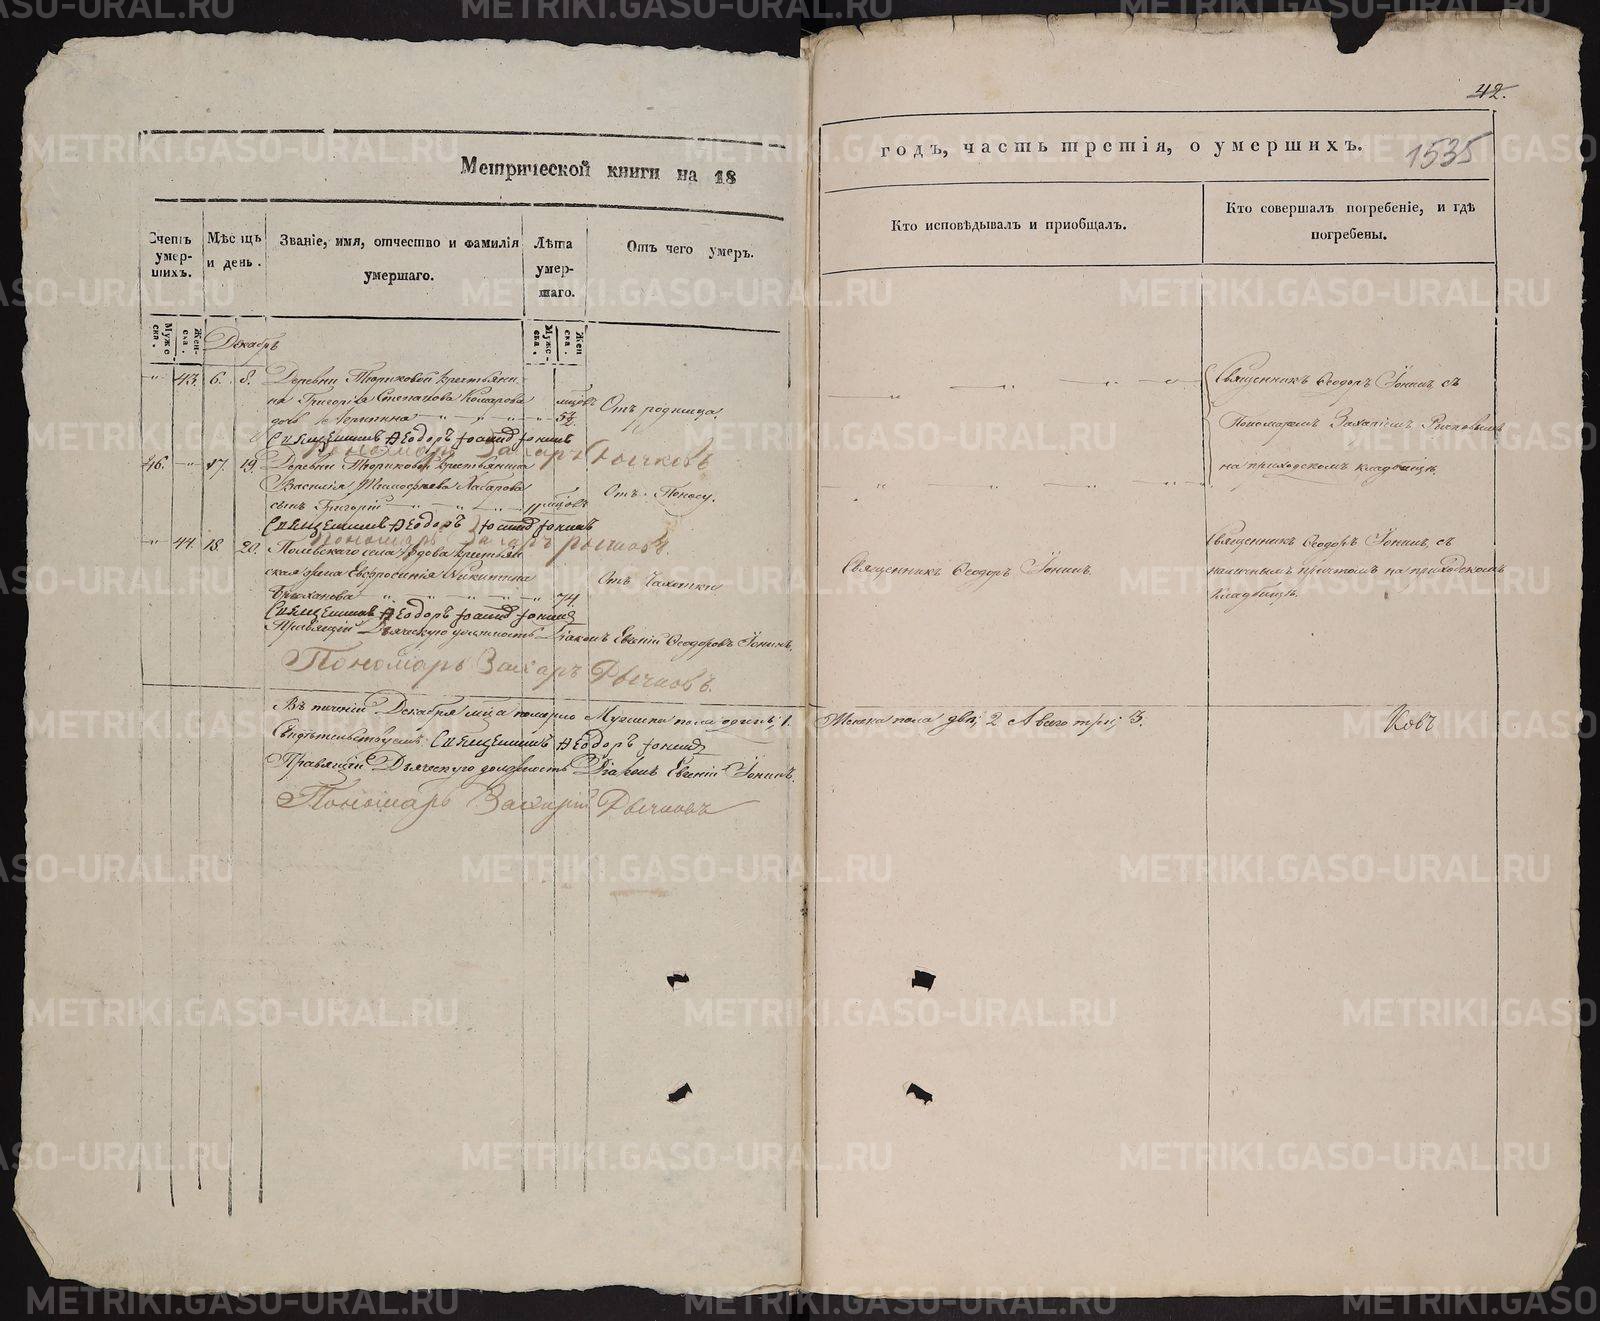 42.
1535
Метрической книги на 18
годъ, часть третія, о умершихъ.
Счетъ умер-шихъ.
Мѣсяцъ и день.
Званіе, имя, отчество и фамилія умершаго.
Лѣта умер-шаго.
Отъ чего умеръ.
Кто исповѣдывалъ и приобщалъ.
Кто совершалъ погребеніе, и гдѣ погребены.
Муже ска.
Жен-ска.
Декабрь
Муже-ска.
Жен ска.
" 43. 6. 8. Деревни крестьяни
на Григорія Степанова Комарова
мцовъ
дочь
5½
Отъ родимца.
Священникъ Ѳеодоръ Іонинъ съ
Пономаремъ Захаріемъ Рычковымъ
на приходскомъ кладбищѣ.
Священникъ Ѳеодоръ Іонинъ
Пономарь Захаръ Рычковъ
46. 17. 19. Деревни крестьянина
Василія Хабарова
сынъ Григорій
11 мцовъ
Отъ Поносу.
Священникъ Ѳеодоръ Іонинъ
Пономарь Захаръ Рычковъ.
" 44. 18. 20. Полевскаго села вдова крестьян
ская жена Евфросинія Никитина
74.
Отъ Чахотки
Священникъ Ѳеодоръ Іонинъ.
Священникъ Ѳеодоръ Іонинъ, съ
наличнымъ причтомъ на приходскомъ
кладбищѣ.
Священникъ Ѳеодоръ Іонинъ
Правящій Дьяческую должность Діаконъ Евгеній Ѳеодоровъ Іонинъ.
Пономарь Захаръ Рычковъ.
Въ теченіи Декабря мца померло Мужеска пола одинъ, 1. Женска пола двѣ, 2 А всего три, 3.
Свидѣтельствуемъ: Священникъ Ѳеодоръ Іонинъ
Правящій Дьяческую должность Діаконъ Евгеній Іонинъ.
Пономарь Захарій Рычковъ